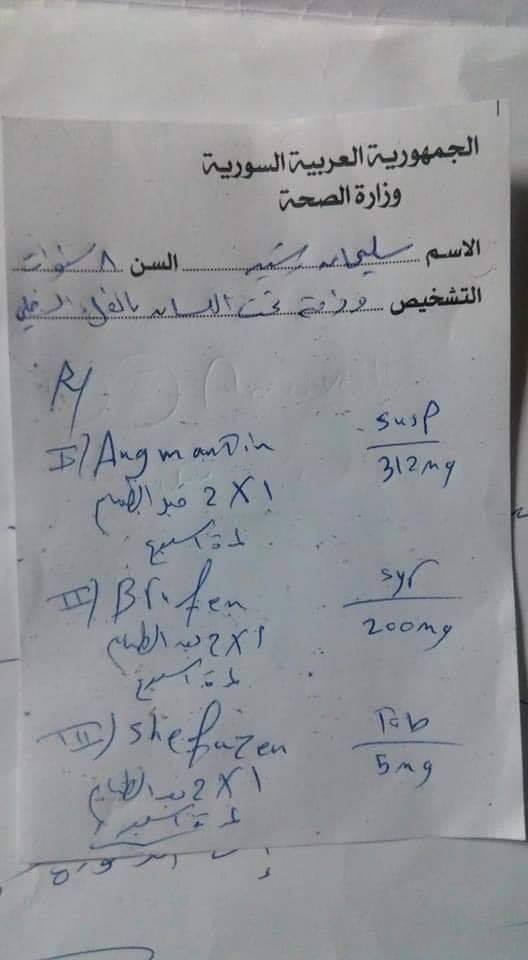 الجمهورية العربية السورية
وزارة الصحة
الاسم سليمان السن ٨ سنوات
التشخيص وذمة تحت اللسان بالفك السفلي
R/
I) Augmantin susp / 312 mg
1 X 2 قبل الطعام
لمدة اسبوع
II) Brifen syr / 200 mg
1 X 2 بعد الطعام
لمدة اسبوع
III) shefazen Tab / 5 mg
1 X 2 بعد الطعام
لمدة اسبوع